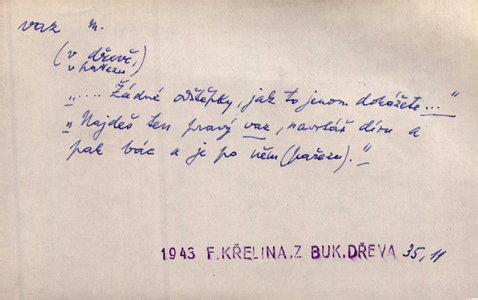 vaz m.
(v dřevě,
v pařezu)
"... Žádné odštěpky, jak to jenom dokážete ..."
"Najdeš ten pravý vaz, navrtáš díru a
pak bác a je po něm (pařezu)."
1943 F.KŘELINA.Z BUK.DŘEVA 35, 11